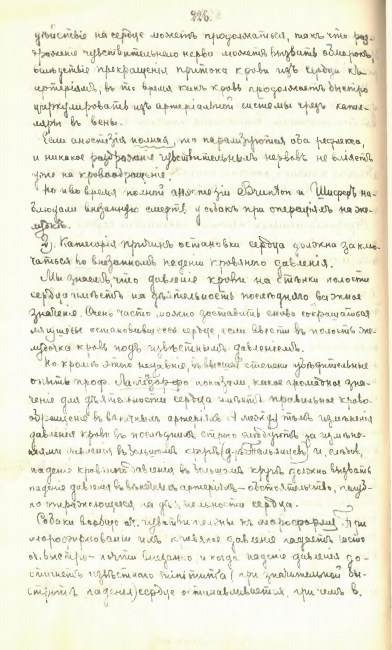 226.
действіе на сердце можетъ продолжаться, такъ что раз-
драженіе чувствительнаго нерва можетъ вызвать обморокъ,
вслѣдствіе прекращенія притока крови изъ сердца къ
артеріямъ, въ то время какъ кровь продолжаетъ быстро
циркулировать изъ артеріальной системы чрезъ капил-
ляры въ вены.
Если анестезія полная, то парализуются оба рефлекса,
и никакое раздраженіе чувствительныхъ нервовъ не вліяетъ
уже на кровообращеніе.
Но и во время полной анестезіи Brunton и Шифъ на-
блюдали внезапную смерть у собакъ при операціяхъ на же-
лудкѣ.
2). Категорія причинъ остановки сердца должна заклю-
чаться во внезапномъ паденіи кровяного давленія.
Мы знаемъ, что давленіе крови на стѣнки полости
сердца имѣетъ на дѣятельность послѣдняго важное
значеніе. Очень часто можно заставить снова сокращаться
остановившееся сердце, если ввести въ полость же-
лудочка кровь подъ извѣстнымъ давленіемъ.
Но кромѣ этого недавніе, въ высшей степени убѣдительные
опыты проф. показали, какое громадное зна-
ченіе для дѣятельности сердца имѣетъ правильное крово-
обращеніе въ вѣнечныхъ артеріяхъ. А между тѣмъ измѣненія
давленія крови въ послѣднихъ строго слѣдуютъ за измѣне-
ніями давленія въ большомъ кругѣ и, слѣдов.,
паденіе кровяного давленія въ большомъ кругѣ должно вызвать
паденіе давленія въ вѣнечныхъ артеріяхъ — обстоятельство, пагуб-
но отражающееся на дѣятельности сердца.
Собаки вообще оч. чувствительны къ хлороформу. При
хлороформированіи ихъ кровяное давленіе падаетъ часто
оч. быстро — почти внезапно и когда паденіе давленія до-
стигнетъ извѣстнаго minimum'а (при значительной бы-
стротѣ паденія) сердце останавливается, при чемъ в.